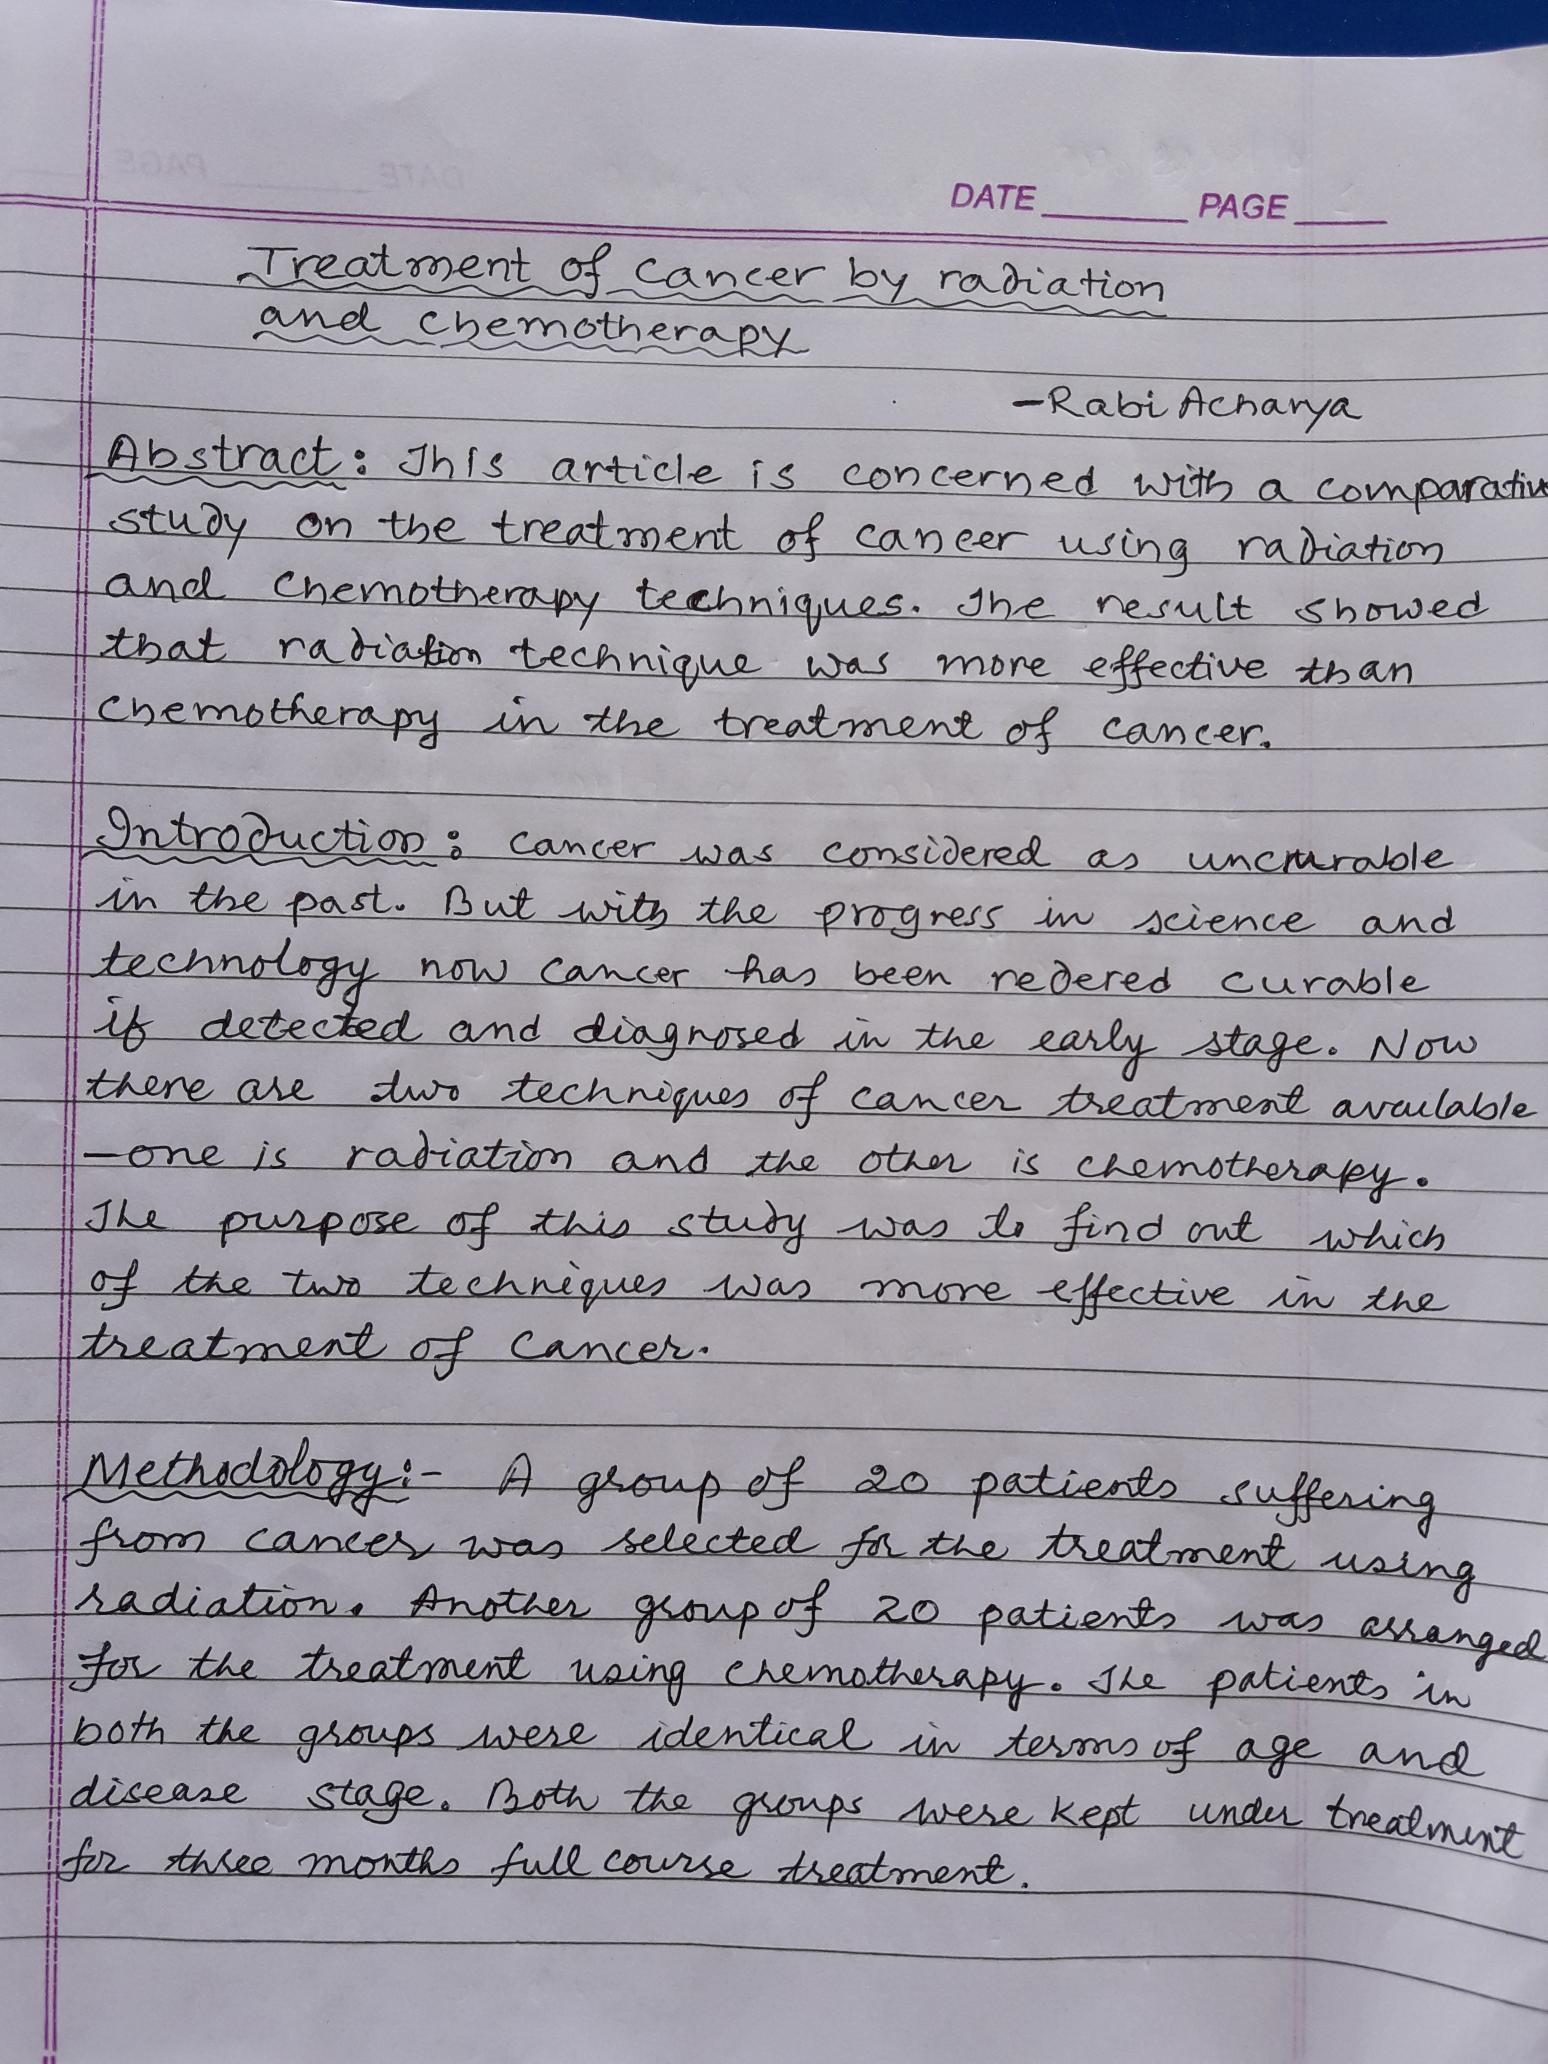 DATE PAGE
Treatment of cancer by radiation
and chemotherapy
-Rabi Acharya
Abstract: This article is concerned with a comparative
study on the treatment of cancer using radiation
and chemotherapy techniques. The result showed
that radiation technique was more effective than
chemotherapy in the treatment of cancer.
Introduction: cancer was considered as uncurable
in the past. But with the progress in science and
technology now cancer has been redered curable
if detected and diagnosed in the early stage. Now
there are two techniques of cancer treatment available
-one is radiation and the other is chemotherapy.
The purpose of this study was to find out which
of the two techniques was more effective in the
treatment of cancer.
Methodology:- A group of 20 patients suffering
from cancer was selected for the treatment using
radiation. Another group of 20 patients was arranged
for the treatment using chemotherapy. The patients in
both the groups were identical in terms of age and
disease stage. Both the groups were kept under treatment
for three months full course treatment.